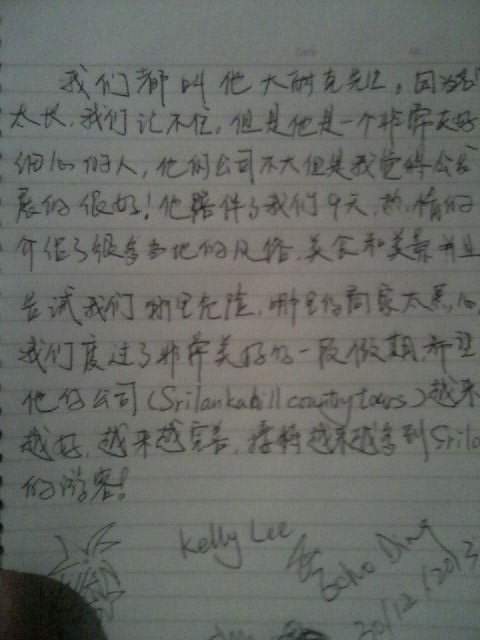 我们都叫他大耐克先生,因为名
太长,我们记不住,但是他是一个非常友好
细心的人,他的公司不大但是我觉得会发
展的很好!他陪伴了我们9天,热情的
介绍了很多当地的风俗,美食和美景并且
告诉我们哪里危险,哪里的商家太黑心,
我们度过了非常美好的一段假期希望
他的公司(Srilankabillcountytours)越来
越好,越来越完善,接待越来越多到Srila
的游客!
Kelly Lee
Echo Ding
20/12/2013